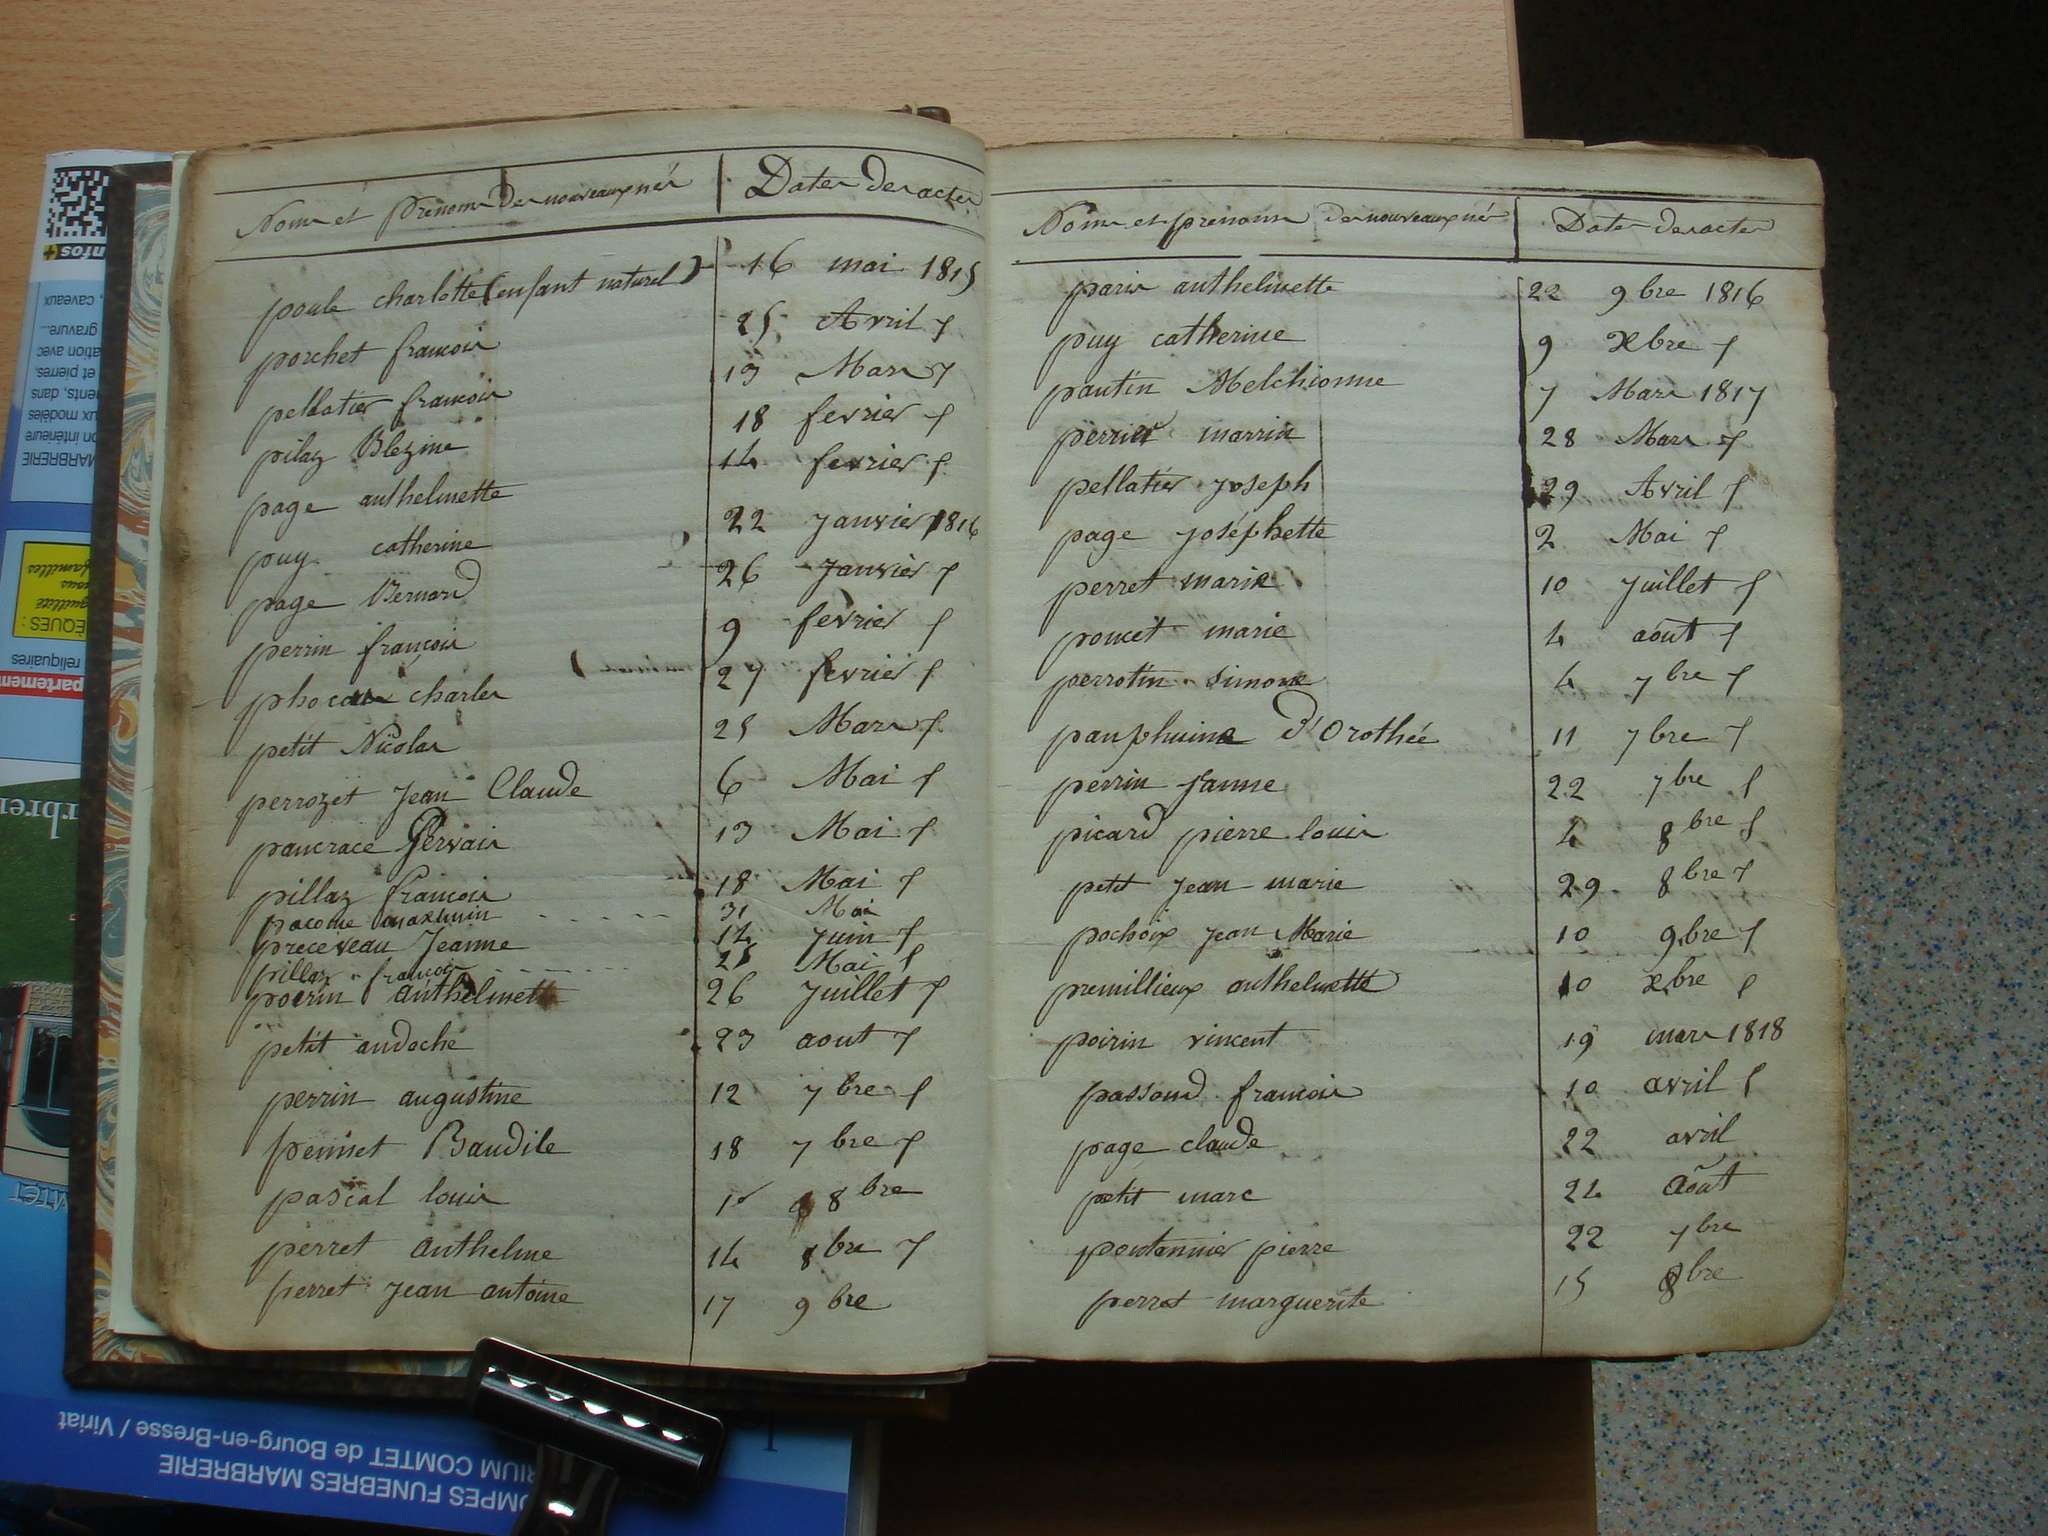 Noms et prenoms des nouveaux nés | Dates des actes
poule charlotte (enfant naturel) 16 mai 1815
porchet francois 25 Avril f
pellatier francois 13 Mars f
pilaz Blezine 18 fevrier f
page anthelmette 14 fevrier f
puy catherine 22 Janvier 1816
page Bernard 26 Janvier f
perrin françois 9 fevrier f
phocas charles 27 fevrier f
petit Nicolas 25 Mars f
perrozet Jean Claude 6 Mai f
pancrace Gervais 13 Mai f
pillaz francois 18 Mai f
pacome maximin 31 Mai
preceveau Jeanne 14 Juin f
pillaz francois 25 Mai f
poirin anthelmette 26 Juillet f
petit andoche 23 aout f
perrin augustine 12 7bre f
penniet Baudile 18 7bre f
pascal louis 1er 8bre
perret anthelme 14 8bre f
perret Jean antoine 17 9bre
Noms et prenoms des nouveaux nés | Dates des actes
paris anthelmette 22 9bre 1816
puy catherine 9 xbre f
pautin Melchionne 7 Mars 1817
perrier marrin 28 Mars f
pellatier Joseph 29 Avril f
page Joséphette 2 Mai f
perret marie 10 Juillet f
poncet marie 4 août f
perrotin simone 4 7bre f
panphuine d'Orothée 11 7bre f
perrin Janne 22 7bre f
picard pierre louis 4 8bre f
petit Jean marie 29 8bre f
pochoix Jean Marie 10 9bre f
premillieux anthelmette 10 xbre f
poirin vincent 19 mars 1818
passoud francois 10 avril f
page claude 22 avril
petit marc 24 août
pontannier pierre 22 7bre
perret marguerite 15 8bre
nfos+
, caveaux
gravure...
ation avec
et pierres,
ments, dans
ux modèles
on intérieure
MARBRERIE
ÈQUES :
reliquaires
partement
OMPES FUNEBRES MARBRERIE
RIUM COMTET de Bourg-en-Bresse / Viriat